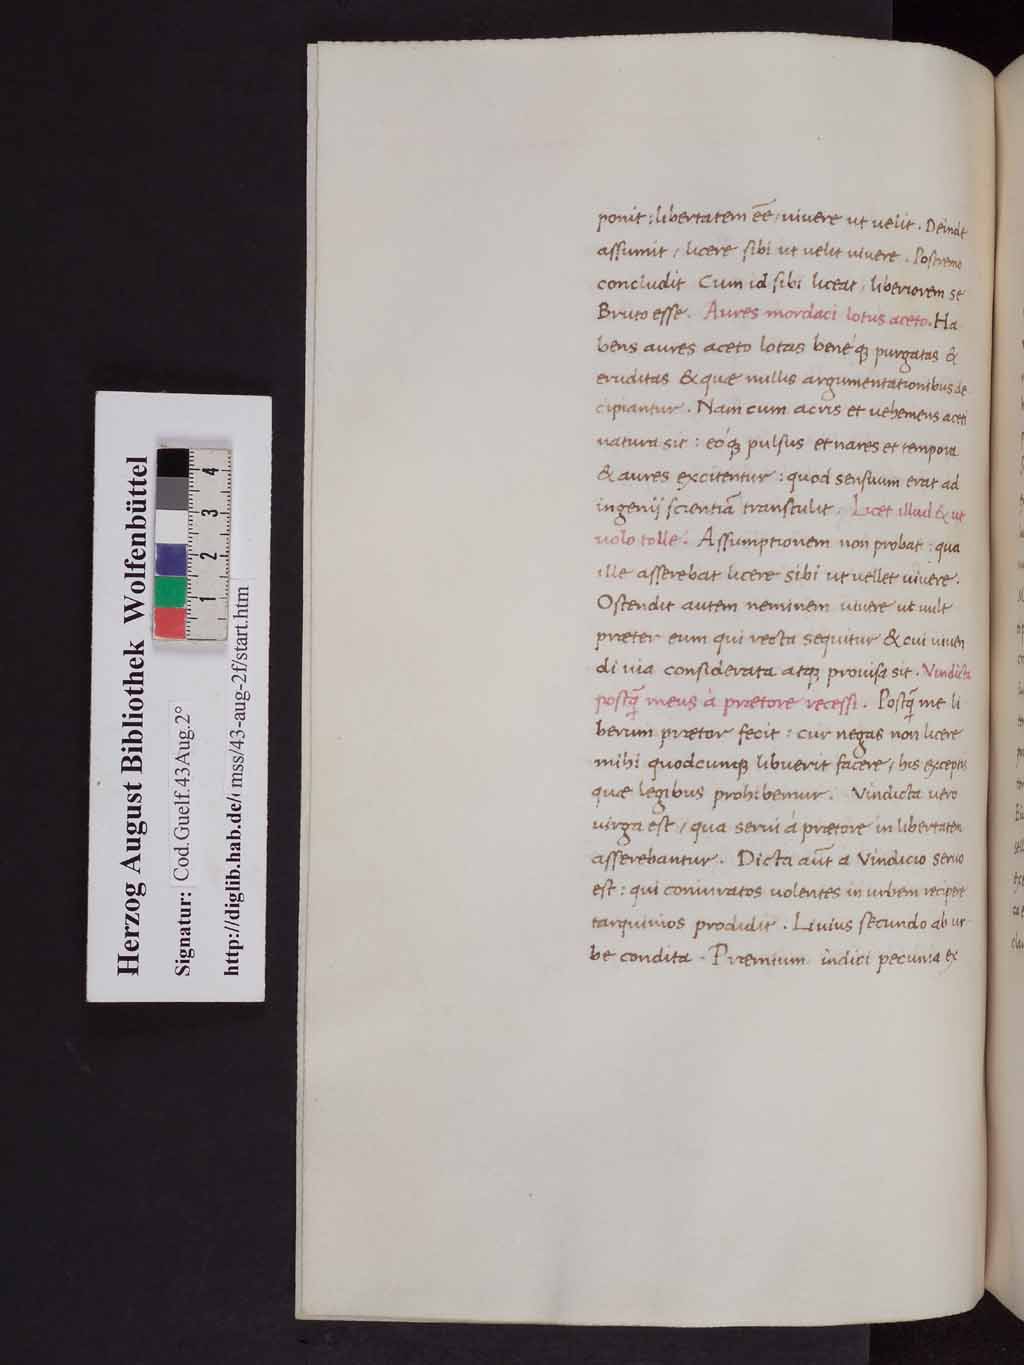 ponit: libertatem ēe, uiuere ut uelit. Deinde
assumit, licere sibi ut uelit uiuere. Postremo
concludit Cum id sibi liceat, liberiorem se
Bruto esse. Aures mordaci lotus aceto. Ha
bens aures aceto lotas bene'qꝫ purgatas &
eruditas & quæ nullis argumentationibus de
cipiantur. Nam cum acris et uehemens aceti
natura sit: eo'qꝫ pulsus et nares et tempora
& aures excitentur: quod sensuum erat ad
ingenij scientiā transtulit. Licet illud & ut
uolo tolle. Assumptionem non probat: qua
ille asserebat licere sibi ut uellet uiuere.
Ostendit autem neminem uiuere ut uult
præter eum qui recta sequitur & cui uiuen
di uia considerata atqꝫ prouisa sit. Vindicta
postq̄ meus à prætore recessi. Postq̄ me li
berum prætor fecit: cur negas non licere
mihi quodcumqꝫ libuerit facere, his exceptis
quæ legibus prohibemur. Vindicta uero
uirga est, qua serui à prætore in libertatem
asserebantur. Dicta aūt a Vindicio seruo
est: qui coniuratos uolentes in urbem recipere
tarquinios prodidit. Liuius secundo ab ur
be condita. Præmium indici pecunia ex
Herzog August Bibliothek Wolfenbüttel
Signatur: Cod.Guelf.43Aug.2°
http://diglib.hab.de/ mss/43-aug-2f/start.htm
1 2 3 4